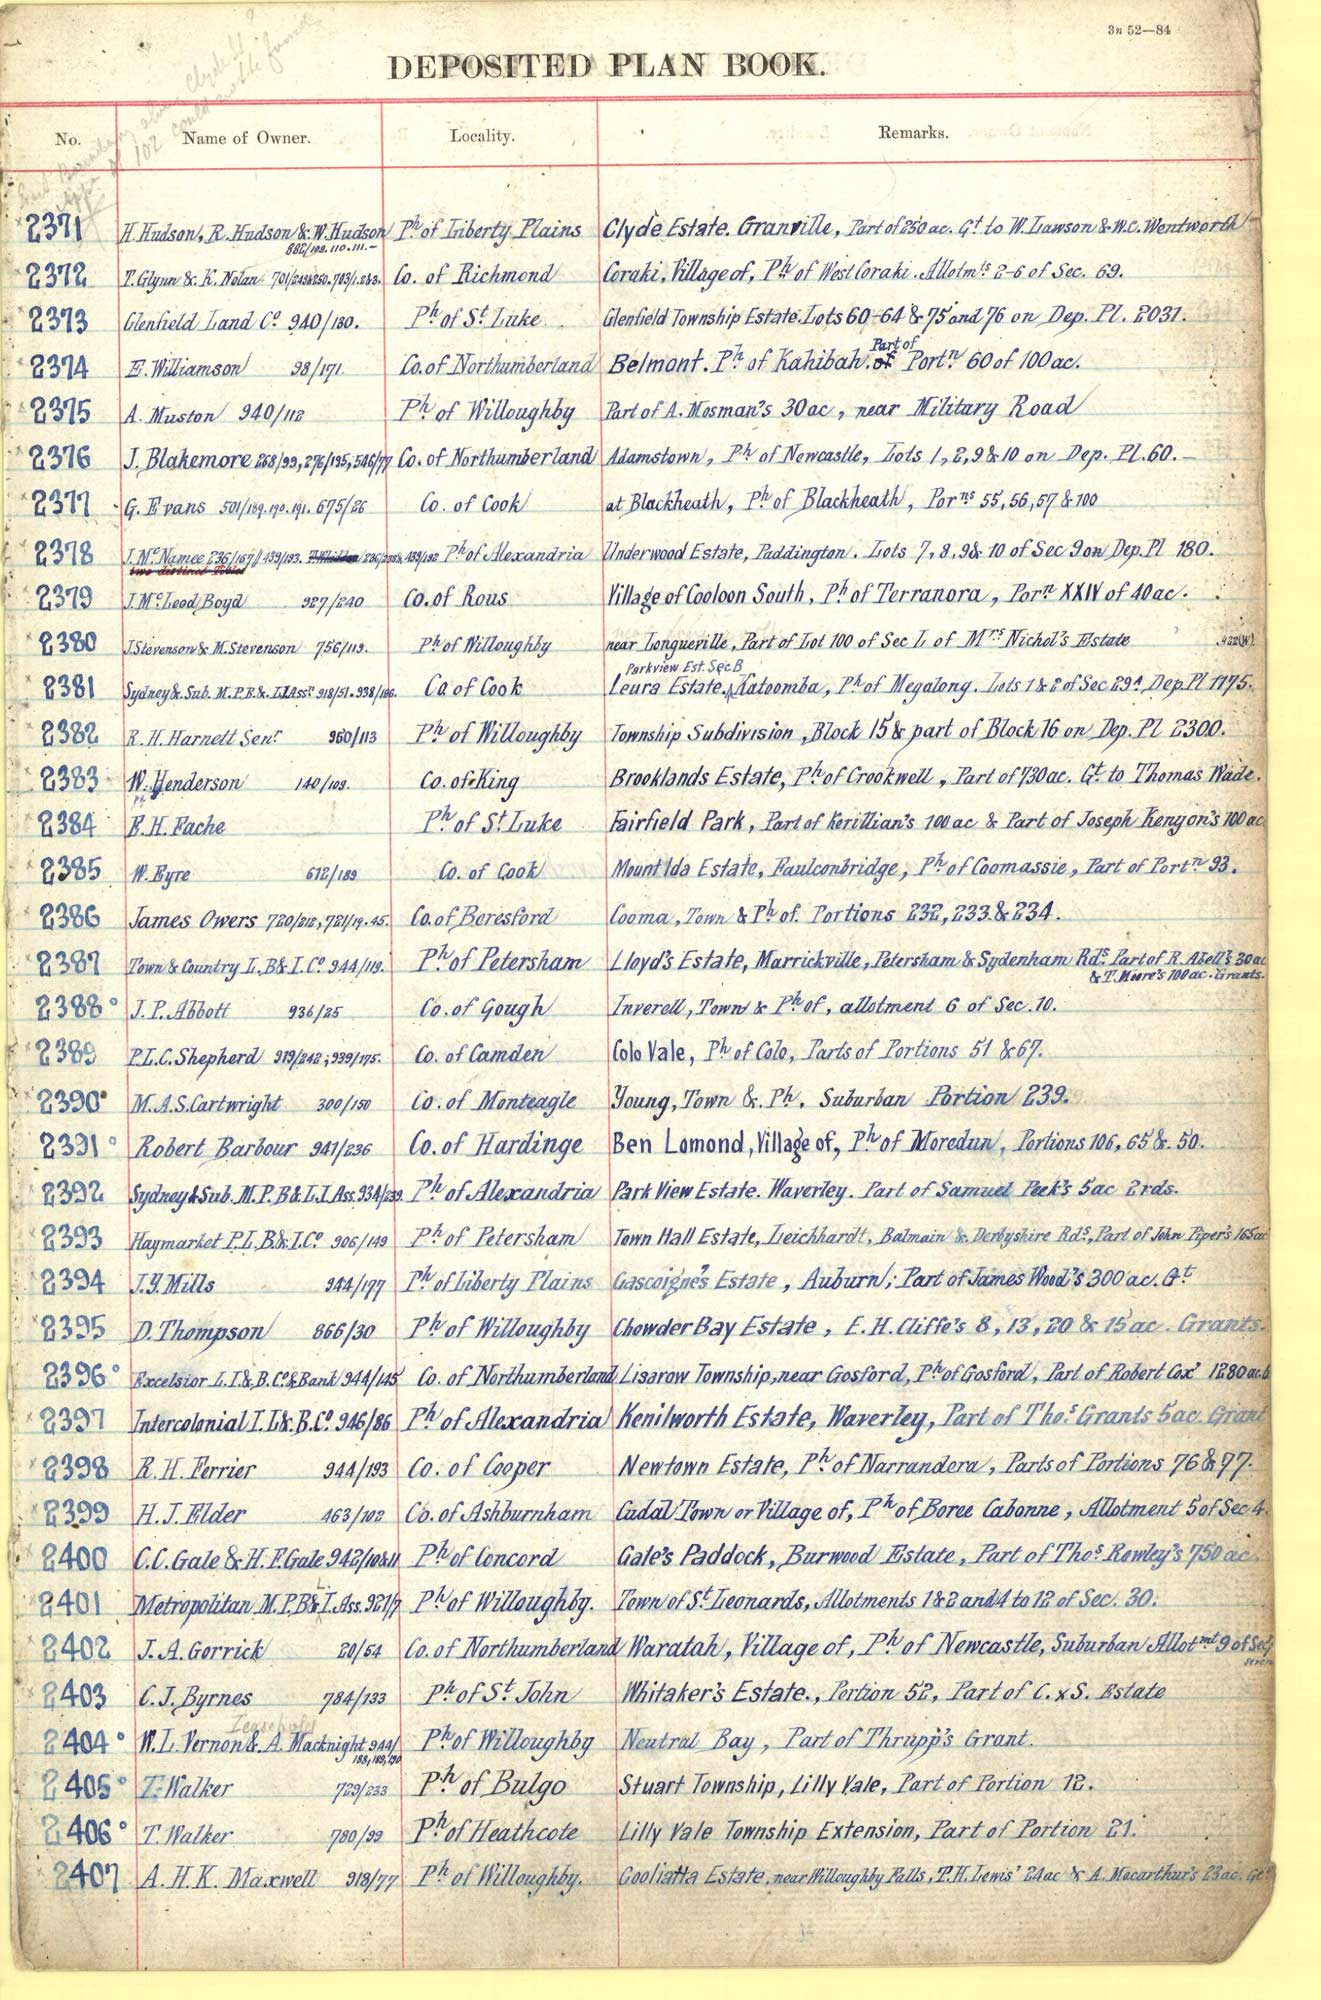 3n 52—84
DEPOSITED PLAN BOOK.
No. Name of Owner. Locality. Remarks.
2371 H. Hudson, R. Hudson & W. Hudson Ph of Liberty Plains Clyde Estate. Granville, Part of 250 ac. Gt to W. Lawson & W.C. Wentworth
882/109.110.111.—
2372 T. Glynn & K. Nolan Co. of Richmond Coraki, Village of, Ph of West Coraki. Allotmts 2-6 of Sec. 69.
2373 Glenfield Land Co 940/180. Ph of St Luke Glenfield Township Estate. Lots 60-64 & 75 and 76 on Dep. Pl. 2031.
Part of
2374 E. Williamson 98/171. Co. of Northumberland Belmont. Ph of Kahibah. of Portn 60 of 100 ac.
2375 A. Muston 940/112 Ph of Willoughby Part of A. Mosman's 30 ac, near Military Road
2376 J. Blakemore 268/99, 276/195, 546/77 Co. of Northumberland Adamstown, Ph of Newcastle, Lots 1, 2, 9 & 10 on Dep. Pl. 60. —
2377 G. Evans 501/189.190.191. 675/26 Co. of Cook at Blackheath, Ph of Blackheath, Porns 55, 56, 57 & 100
2378 J. Mc Namee 236/167 // 439/193. Ph of Alexandria Underwood Estate, Paddington. Lots 7, 8, 9 & 10 of Sec 9 on Dep. Pl 180.
two distinct Titles
2379 J. Mc Leod Boyd 927/240 Co. of Rous Village of Cooloon South, Ph of Terranora, Porn XXIV of 40 ac.
2380 J. Stevenson & M. Stevenson 756/119. Ph of Willoughby near Longueville, Part of Lot 100 of Sec L of Mrs Nichol's Estate
Parkview Est. Sec B
2381 Sydney & Sub. M. P. B. & L. I. Assn 918/51. 938/186. Co of Cook Leura Estate, Katoomba, Ph of Megalong. Lots 1 & 2 of Sec 29A Dep. Pl 1175.
2382 R. H. Harnett Senr 960/113 Ph of Willoughby Township Subdivision, Block 15 & part of Block 16 on Dep. Pl 2300.
2383 W. Henderson 140/109. Co. of King Brooklands Estate, Ph of Crookwell, Part of 730 ac. Gt to Thomas Wade.
2384 E. H. Fache Ph of St Luke Fairfield Park, Part of Kerillian's 100 ac & Part of Joseph Kenyon's 100 ac
2385 W. Eyre 612/189 Co. of Cook Mount Ida Estate, Faulconbridge, Ph of Coomassie, Part of Portn 93.
2386 James Owers 720/212, 721/19.45. Co. of Beresford Cooma, Town & Ph of. Portions 232, 233 & 234.
2387 Town & Country L. B & I. Co 944/119. Ph of Petersham Lloyd's Estate, Marrickville, Petersham & Sydenham Rds. Part of R. Abell's 30 ac
& T. Moore's 100 ac. Grants.
2388 J. P. Abbott 936/25 Co. of Gough Inverell, Town & Ph of, allotment 6 of Sec. 10.
2389 P. L. C. Shepherd 919/242; 939/175. Co. of Camden Colo Vale, Ph of Colo, Parts of Portions 51 & 67.
2390 M. A. S. Cartwright 300/150 Co. of Monteagle Young, Town & Ph, Suburban Portion 239.
2391 Robert Barbour 941/236 Co. of Hardinge Ben Lomond, Village of, Ph of Moredun, Portions 106, 65 & 50.
2392 Sydney & Sub. M. P. B & L. I. Ass. 934/239 Ph of Alexandria Park View Estate. Waverley. Part of Samuel Peek's 5 ac 2 rds.
2393 Haymarket P. L. B. & I. Co 906/149 Ph of Petersham Town Hall Estate, Leichhardt, Balmain & Derbyshire Rds, Part of John Piper's 165 ac
2394 J. Y. Mills 944/177 Ph of Liberty Plains Gascoigne's Estate, Auburn; Part of James Wood's 300 ac. Gt
2395 D. Thompson 866/30 Ph of Willoughby Chowder Bay Estate, E. H. Cliffe's 8, 13, 20 & 15 ac. Grants.
2396 Excelsior L. I. & B. Co & Bank 944/145 Co. of Northumberland Lisarow Township, near Gosford, Ph of Gosford, Part of Robert Cox' 1280 ac.
2397 Intercolonial I. L & B. Co. 946/86 Ph of Alexandria Kenilworth Estate, Waverley, Part of Thos Grants 5 ac. Grant
2398 R. H. Ferrier 944/193 Co. of Cooper Newtown Estate, Ph of Narrandera, Parts of Portions 76 & 77.
2399 H. J. Elder 463/102 Co. of Ashburnham Cudal Town or Village of, Ph of Boree Cabonne, Allotment 5 of Sec 4.
2400 C. C. Gale & H. F. Gale 942/10 & 11 Ph of Concord Gale's Paddock, Burwood Estate, Part of Thos Rowley's 750 ac
2401 Metropolitan M. P. B & I. Ass. 921/7 Ph of Willoughby. Town of St Leonards, Allotments 1 & 2 and 4 to 12 of Sec. 30.
2402 J. A. Gorrick 20/54 Co. of Northumberland Waratah, Village of, Ph of Newcastle, Suburban Allotmt 9 of Sec
2403 C. J. Byrnes 784/133 Ph of St John Whitaker's Estate., Portion 52, Part of C. & S. Estate
Leasehold
2404 W. L. Vernon & A. Macknight 944/ Ph of Willoughby Neutral Bay, Part of Thrupp's Grant.
188,189,190
2405 T. Walker 729/233 Ph of Bulgo Stuart Township, Lilly Vale, Part of Portion 12.
2406 T. Walker 780/99 Ph of Heathcote Lilly Vale Township Extension, Part of Portion 21.
2407 A. H. K. Maxwell 918/77 Ph of Willoughby. Cooliatta Estate, near Willoughby Falls, T. H. Lewis' 24 ac & A. Macarthur's 23 ac. Gts